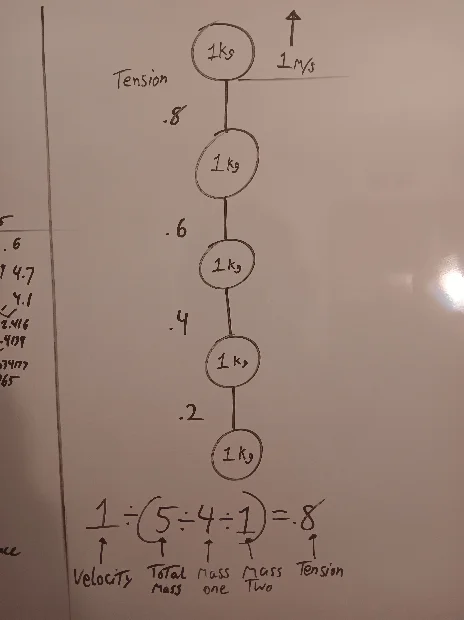 1kg
1 M/s
Tension
.8
1kg
.6
1kg
.4
1kg
.2
1kg
.6
4.7
4.1
1 ÷ (5 ÷ 4 ÷ 1) = .8
Velocity Total Mass Mass one Mass Two Tension